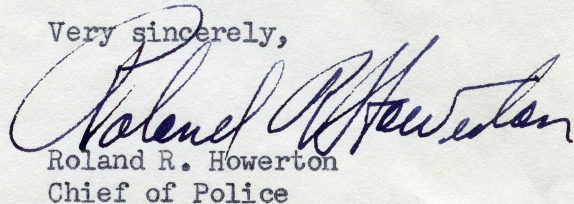 Very sincerely,
Roland R Howerton
Roland R. Howerton
Chief of Police